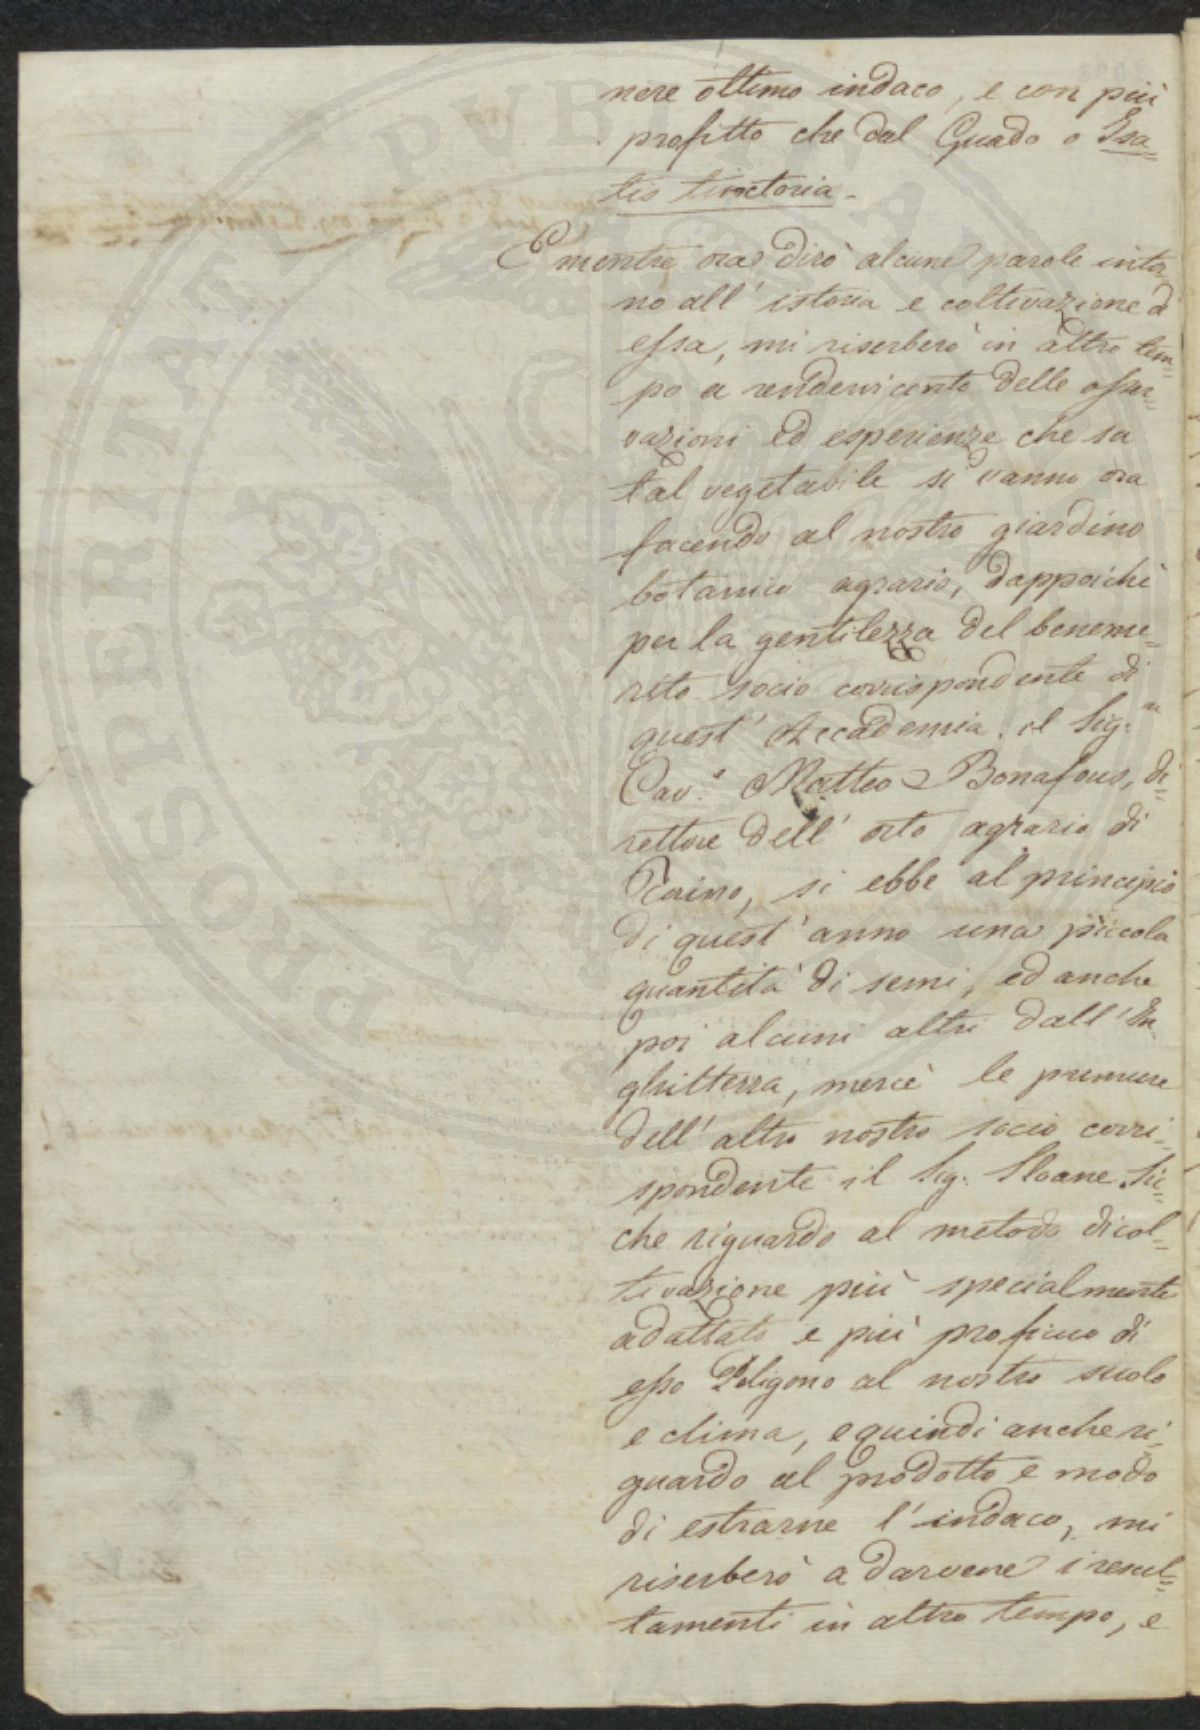 nere ottimo indaco, e con più
profitto che dal Guado o Isa=
tis tinctoria.
E mentre ora dirò alcune parole intor
no all' istoria e coltivazione di
essa, mi riserberò in altro tem=
po a rendervi conto delle osser=
vazioni ed esperienze che su
tal vegetabile si vanno ora
facendo al nostro giardino
botanico agrario, dappoichè
per la gentilezza del beneme=
rito socio corrispondente di
quest' Accademia il Sig.re
Cav.e Matteo Bonafous, di=
rettore dell' orto agrario di
Torino, si ebbe al principio
di quest' anno una piccola
quantità di semi, ed anche
poi alcuni altri dall' In
ghilterra, mercè le premure
dell' altro nostro socio corri=
spondente il Sig. Sloane. Sic=
che riguardo al metodo di col=
tivazione più specialmente
adattato e più proficuo di
esso Poligono al nostro suolo
e clima, e quindi anche ri=
guardo al prodotto e modo
di estrarne l' indaco, mi
riserberò a darvene i resul=
tamenti in altro tempo, e
PROSPERITATI PVBLICAE